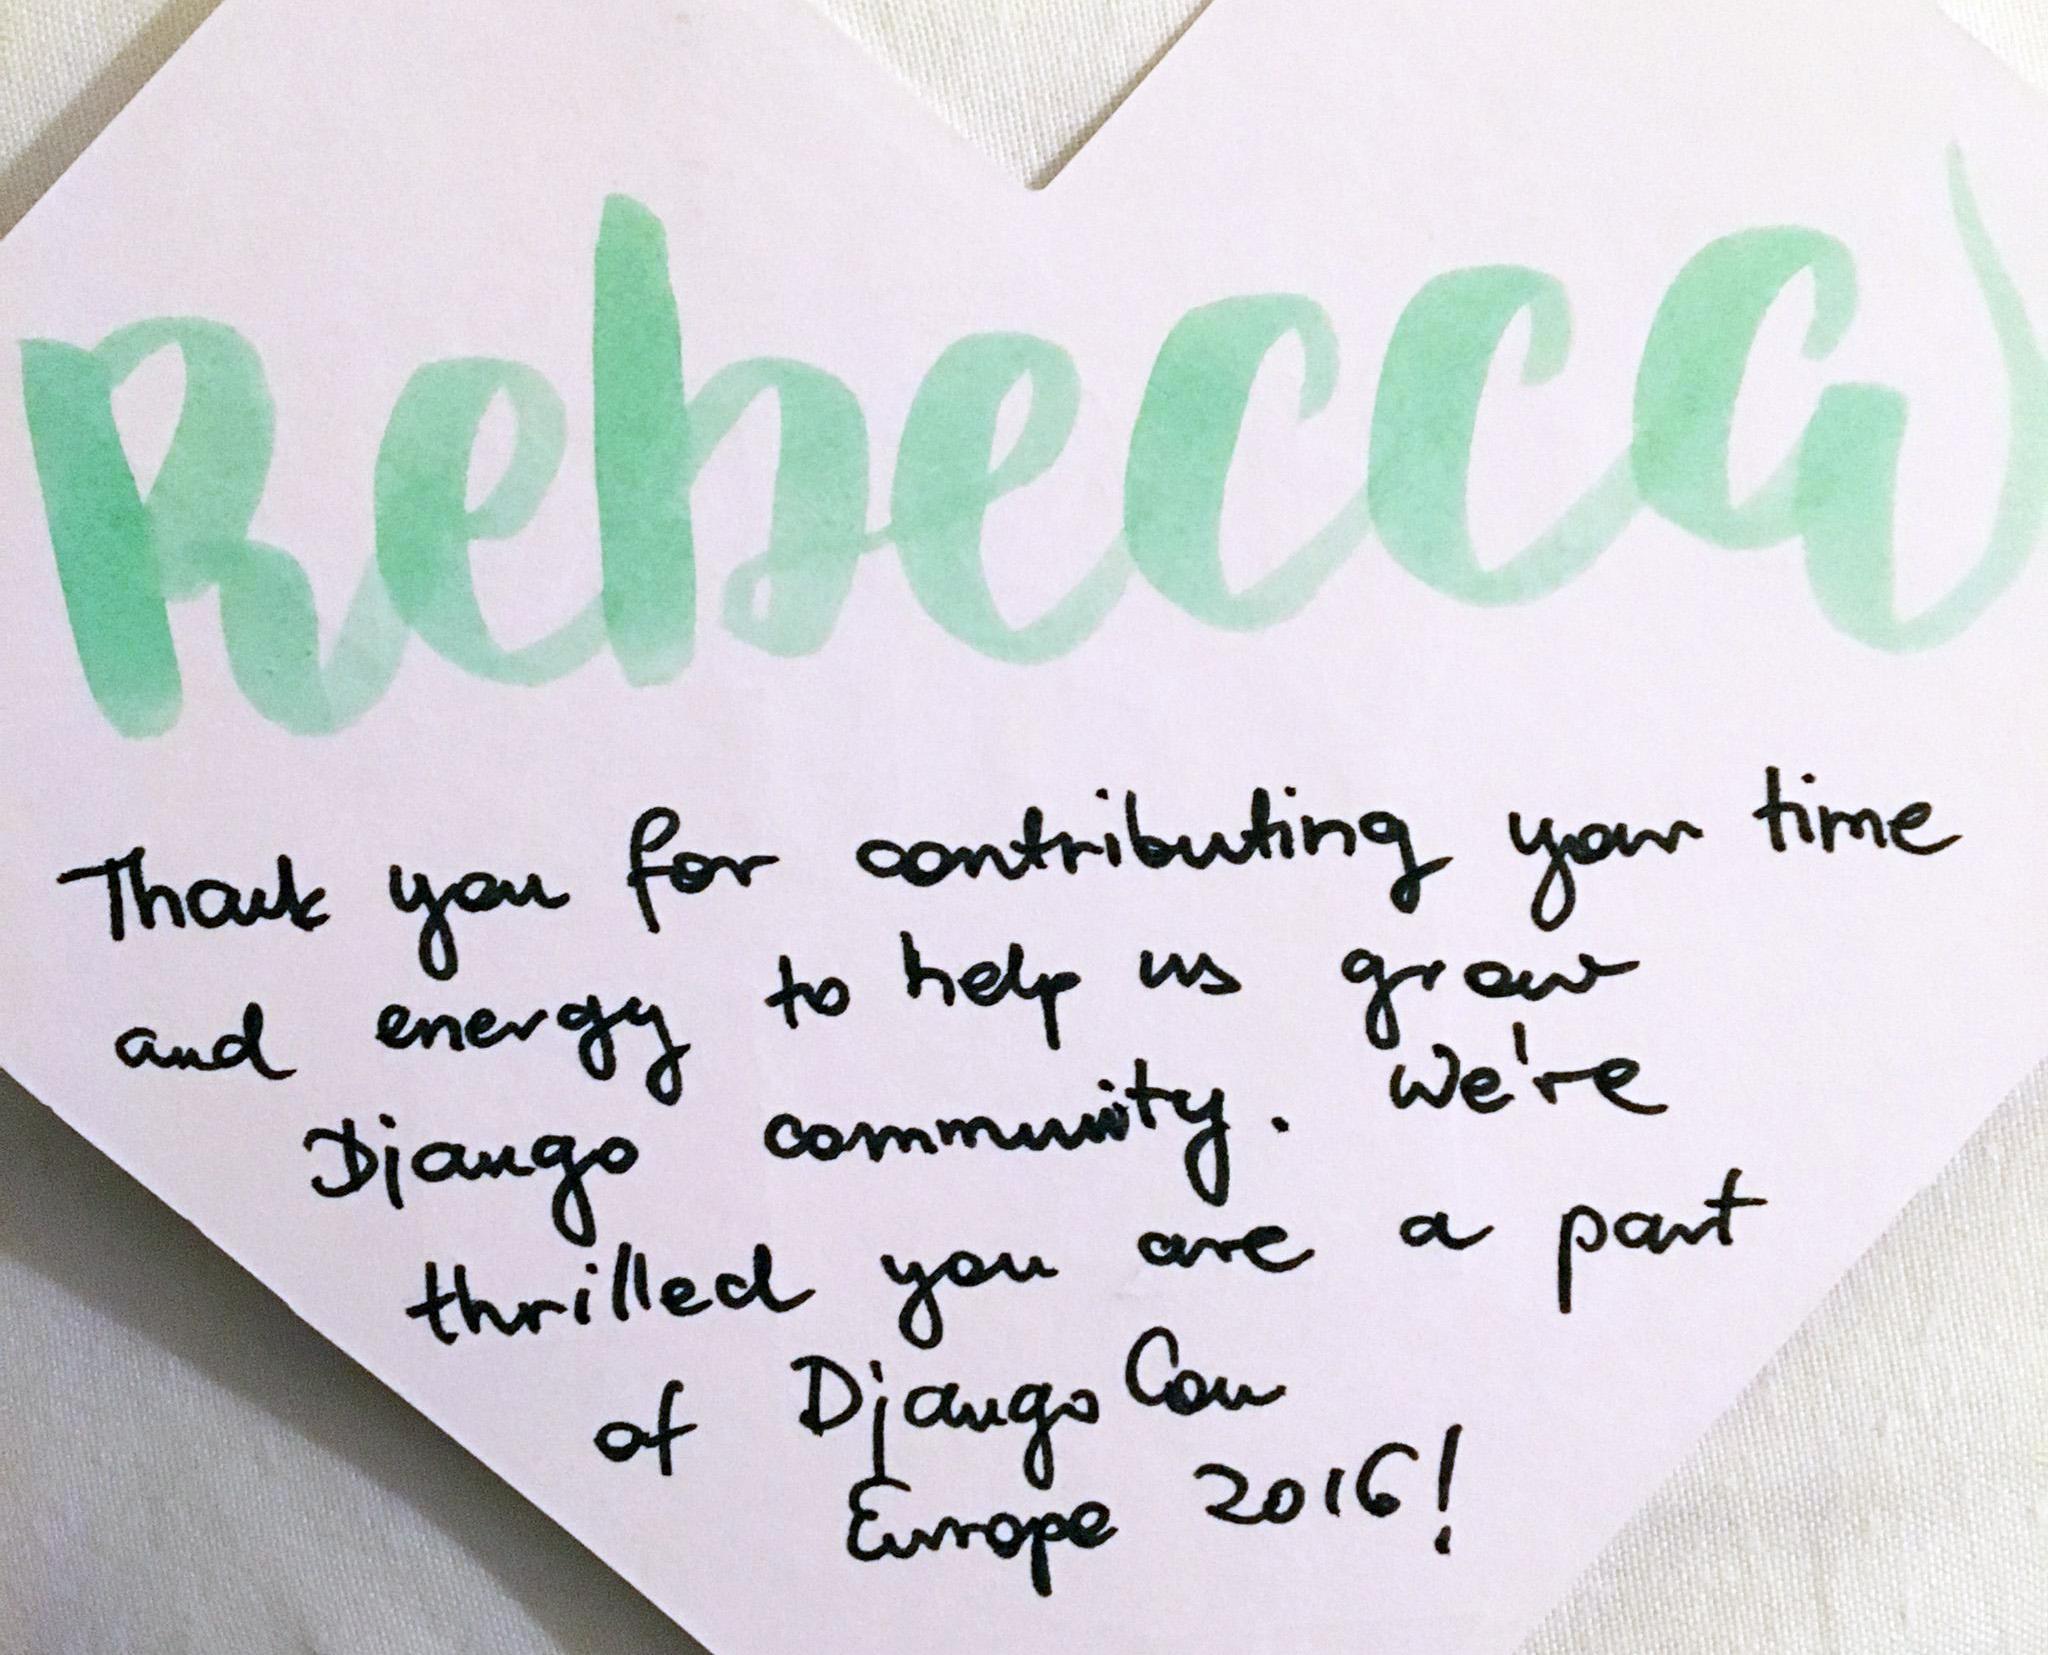 Rebecca
Thank you for contributing your time
and energy to help us grow
Django community. We're
thrilled you are a part
of DjangoCon
Europe 2016!